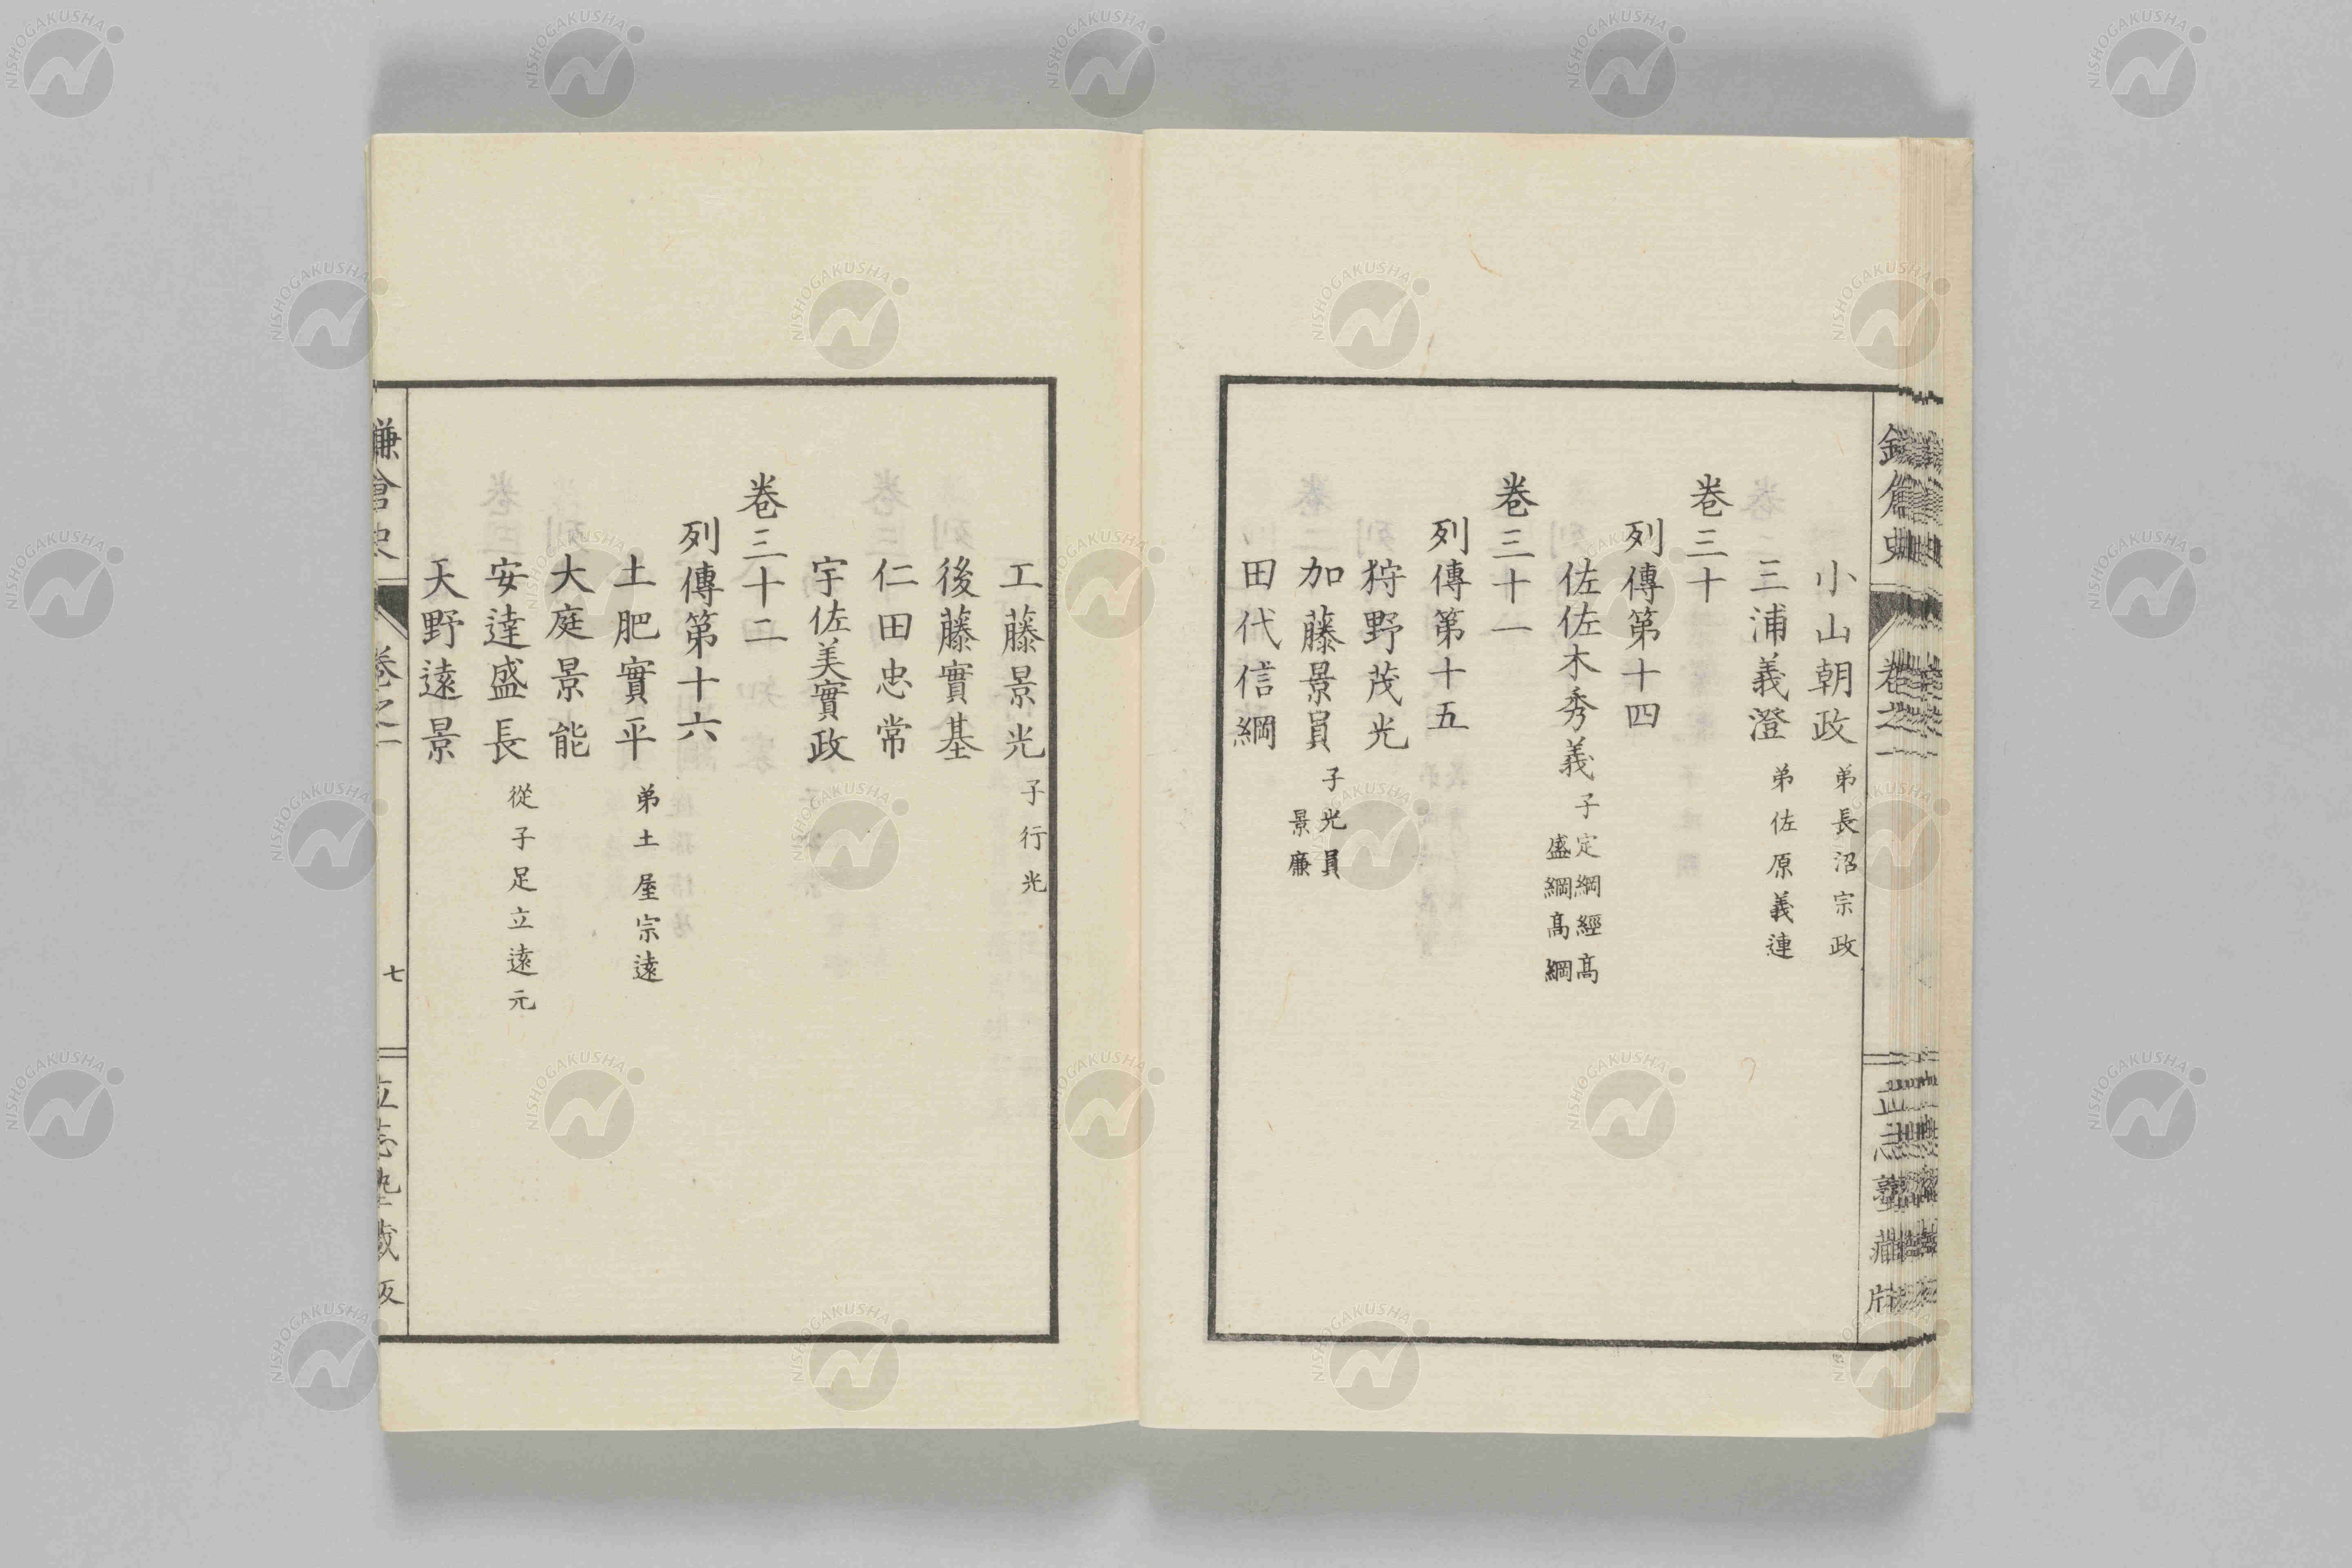 小山朝政 弟長沼宗政
三浦義澄 弟佐原義連
卷三十
列傳第十四
佐佐木秀義 子定綱經高
盛綱高綱
卷三十一
列傳第十五
狩野茂光
加藤景員 子光員
景廉
田代信綱
工藤景光 子行光
後藤實基
仁田忠常
宇佐美實政
卷三十二
列傳第十六
土肥實平 弟土屋宗遠
大庭景能
安達盛長 從子足立遠元
天野遠景
鎌倉史 卷之一 七 立志塾藏版
NISHOGAKUSHA